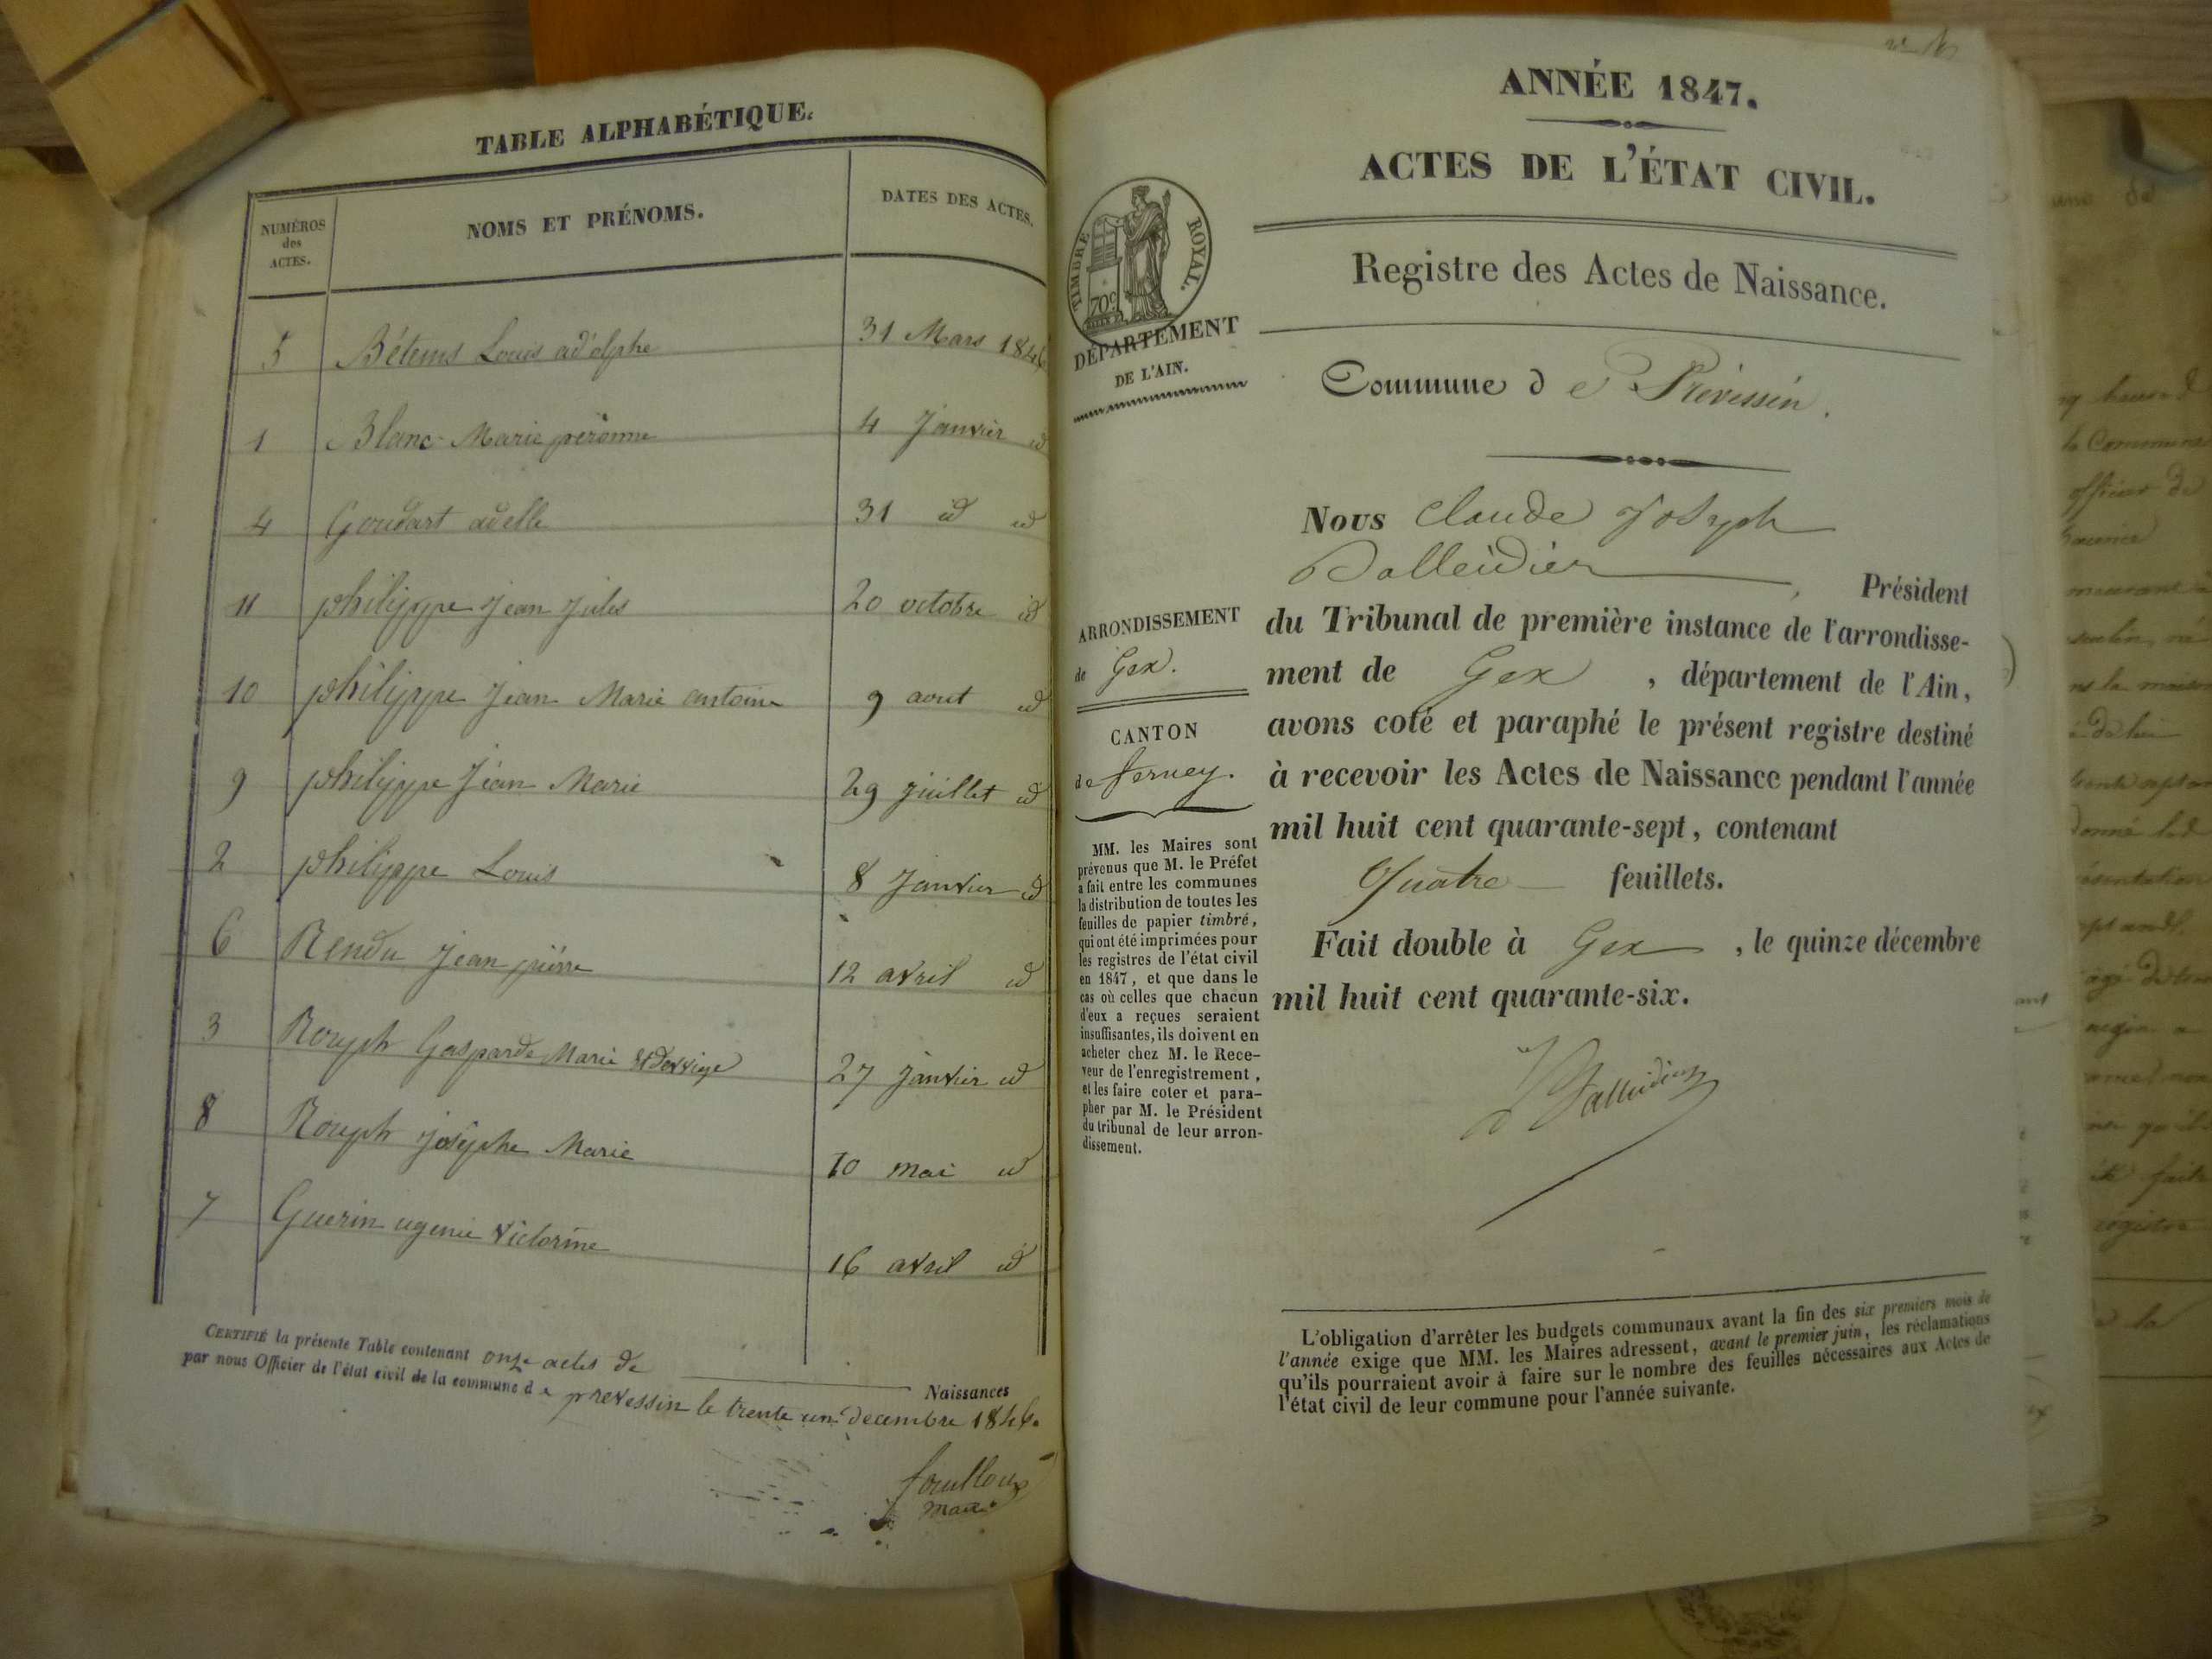 TABLE ALPHABÉTIQUE.
NUMÉROS
des
ACTES.
NOMS ET PRÉNOMS.
DATES DES ACTES.
5 Bétems Louis ad'olphe 31 Mars 1846
1 Blanc Marie peronne 4 Janvier id
4 Goudart adelle 31 id id
11 philippe Jean Jules 20 octobre id
10 philippe Jean Marie antoine 9 aout id
9 philippe Jean Marie 29 juillet id
2 philippe Louis 8 Janvier id
6 Rendu Jean pierre 12 avril id
3 Rouph Gasparde Marie 27 janvier id
8 Rouph josephe Marie 10 mai id
7 Guerin ugenie victorine 16 avril id
CERTIFIÉ la présente Table contenant onze actes de Naissances
par nous Officier de l'état civil de la commune d e prevessin le trente un decembre 1846.
fouilloux
Maire
ANNÉE 1847.
ACTES DE L'ÉTAT CIVIL.
TIMBRE ROYAL.
70c
DÉPARTEMENT
DE L'AIN.
Registre des Actes de Naissance.
Commune d e Prévessin.
Nous Claude Joseph
Balleidier, Président
du Tribunal de première instance de l'arrondisse-
ment de Gex, département de l'Ain,
avons coté et paraphé le présent registre destiné
à recevoir les Actes de Naissance pendant l'année
mil huit cent quarante-sept, contenant
Quatre feuillets.
Fait double à Gex, le quinze décembre
mil huit cent quarante-six.
Balleidier
ARRONDISSEMENT
de Gex.
CANTON
de Ferney.
MM. les Maires sont
prévenus que M. le Préfet
a fait entre les communes
la distribution de toutes les
feuilles de papier timbré,
qui ont été imprimées pour
les registres de l'état civil
en 1847, et que dans le
cas où celles que chacun
d'eux a reçues seraient
insuffisantes, ils doivent en
acheter chez M. le Rece-
veur de l'enregistrement,
et les faire coter et para-
pher par M. le Président
du tribunal de leur arron-
dissement.
L'obligation d'arrêter les budgets communaux avant la fin des six premiers mois de
l'année exige que MM. les Maires adressent, avant le premier juin, les réclamations
qu'ils pourraient avoir à faire sur le nombre des feuilles nécessaires aux Actes de
l'état civil de leur commune pour l'année suivante.